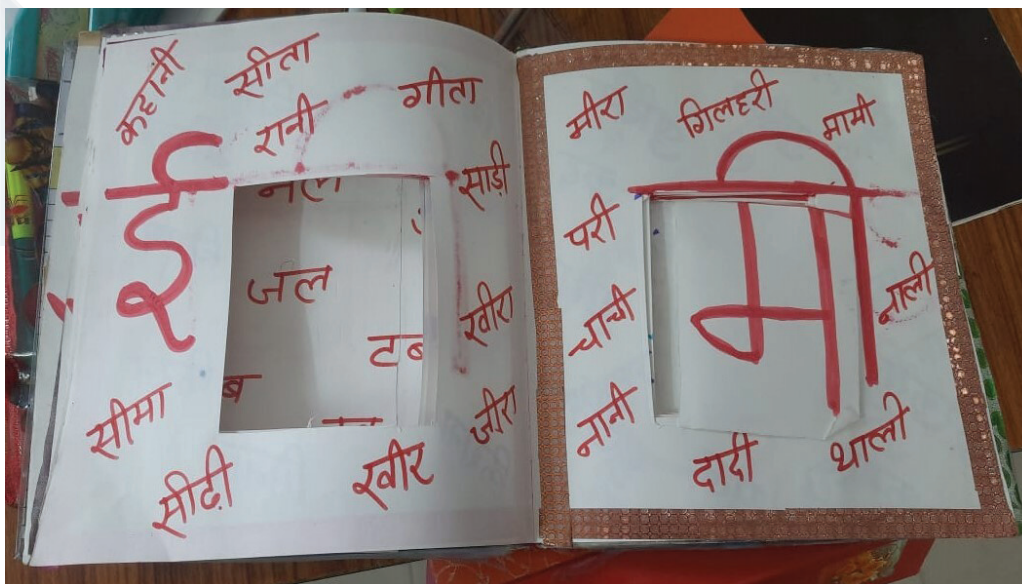 कहानी
सीता
रानी
गीता
साड़ी
ई
नल
जल
टब
ब
खीरा
जीरा
सीमा
सीढ़ी
खीर
मीरा
गिलहरी
मामी
परी
मी
चाची
नानी
दादी
थाली